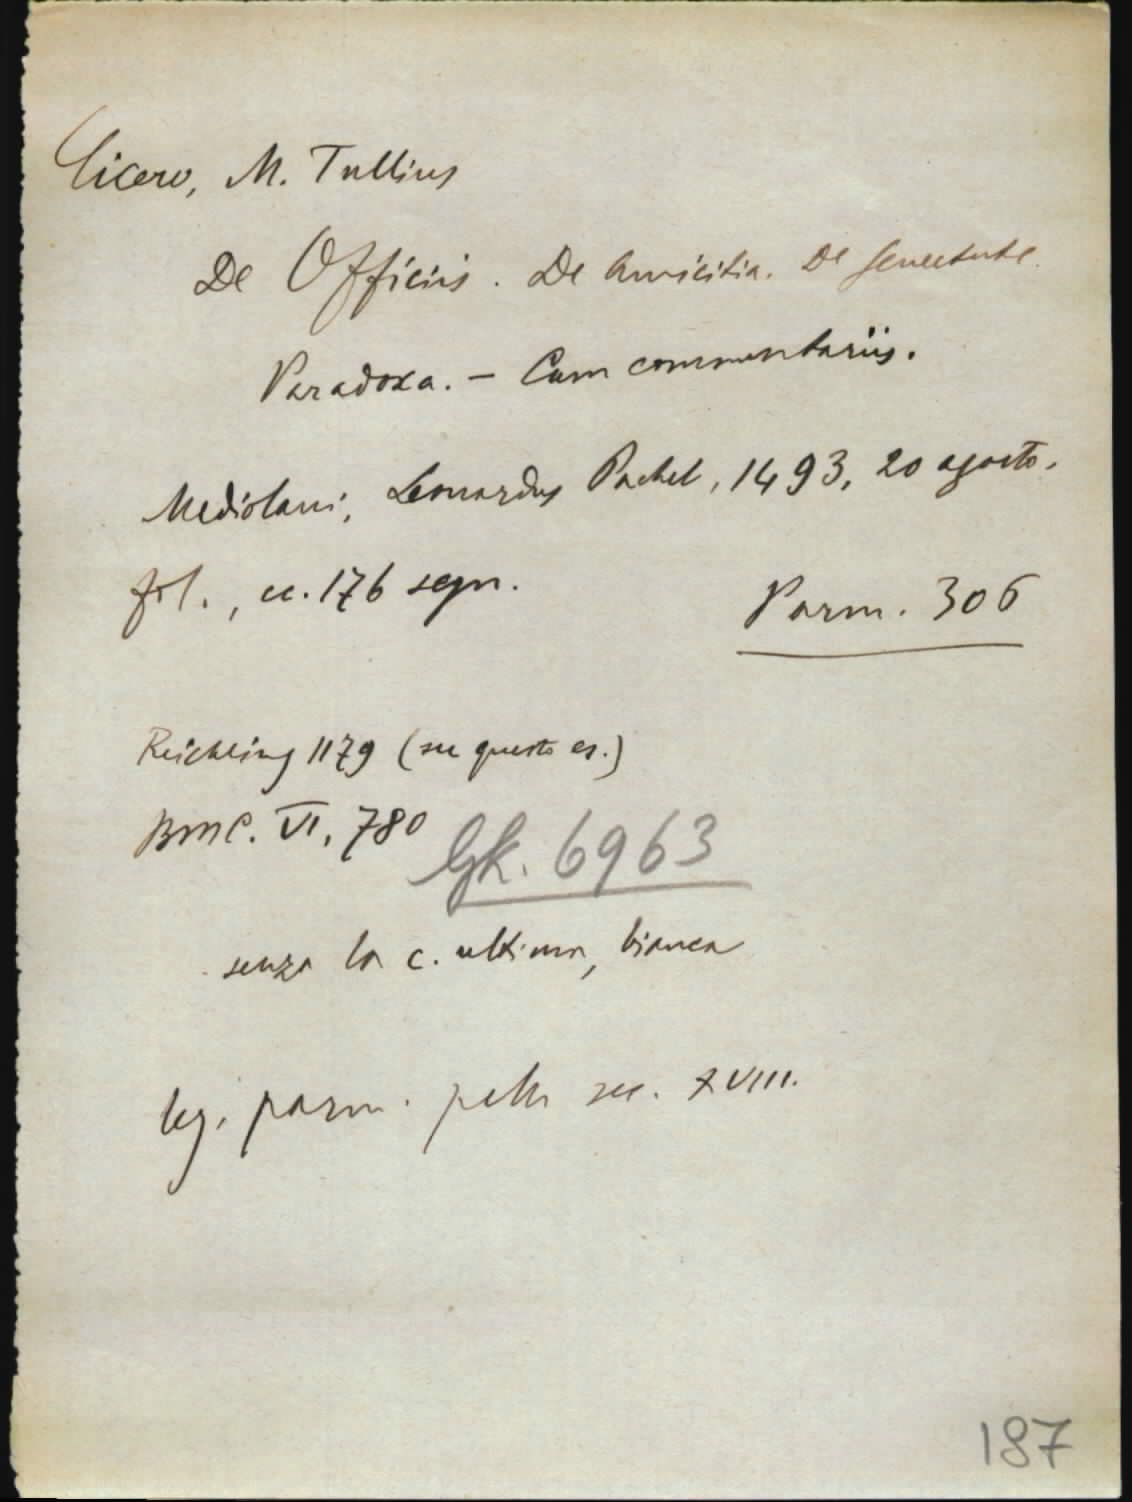 Cicero, M. Tullius
De Officiis. De Amicitia. De Senectute.
Paradoxa. – Cum commentariis.
Mediolani, Leonardus Pachel, 1493, 20 agosto.
fol., cc. 176 segn.
Parm. 306
Reichling 1179 (su questo es.)
BMC. VI, 780
Gk. 6963
senza la c. ultima, bianca
leg. parm. pelle sec. XVIII.
187